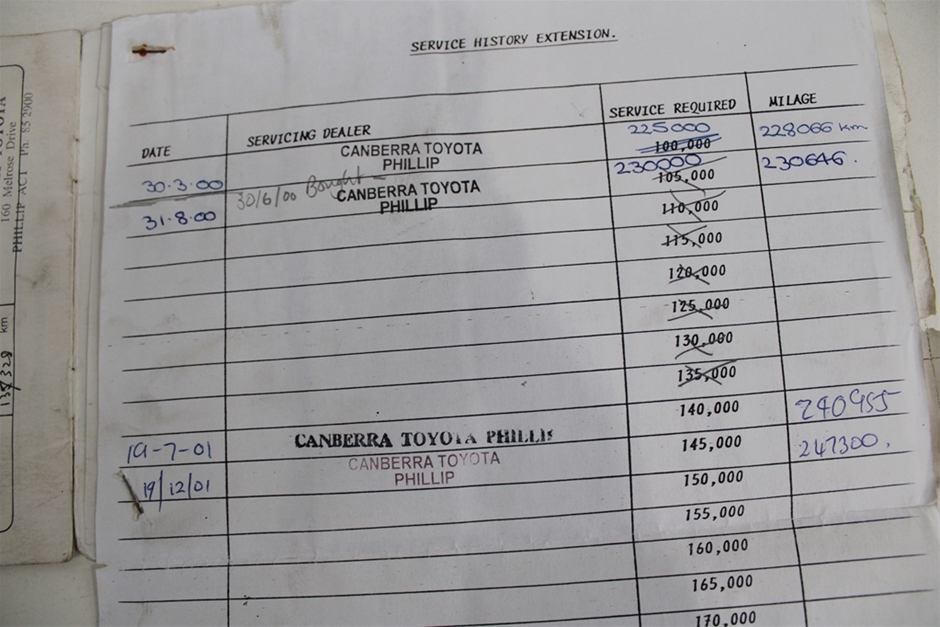 SERVICE HISTORY EXTENSION.
DATE SERVICING DEALER SERVICE REQUIRED MILAGE
30.3.00 CANBERRA TOYOTA PHILLIP 225000 100,000 228066 km
30/6/00 Bought
31.8.00 CANBERRA TOYOTA PHILLIP 230000 105,000 230646.
110,000
115,000
120,000
125,000
130,000
135,000
140,000 240955
19-7-01 CANBERRA TOYOTA PHILLIP 145,000 247300.
19/12/01 CANBERRA TOYOTA PHILLIP 150,000
155,000
160,000
165,000
170,000
160 Melrose Drive
PHILLIP ACT Ph: 85 2900
km